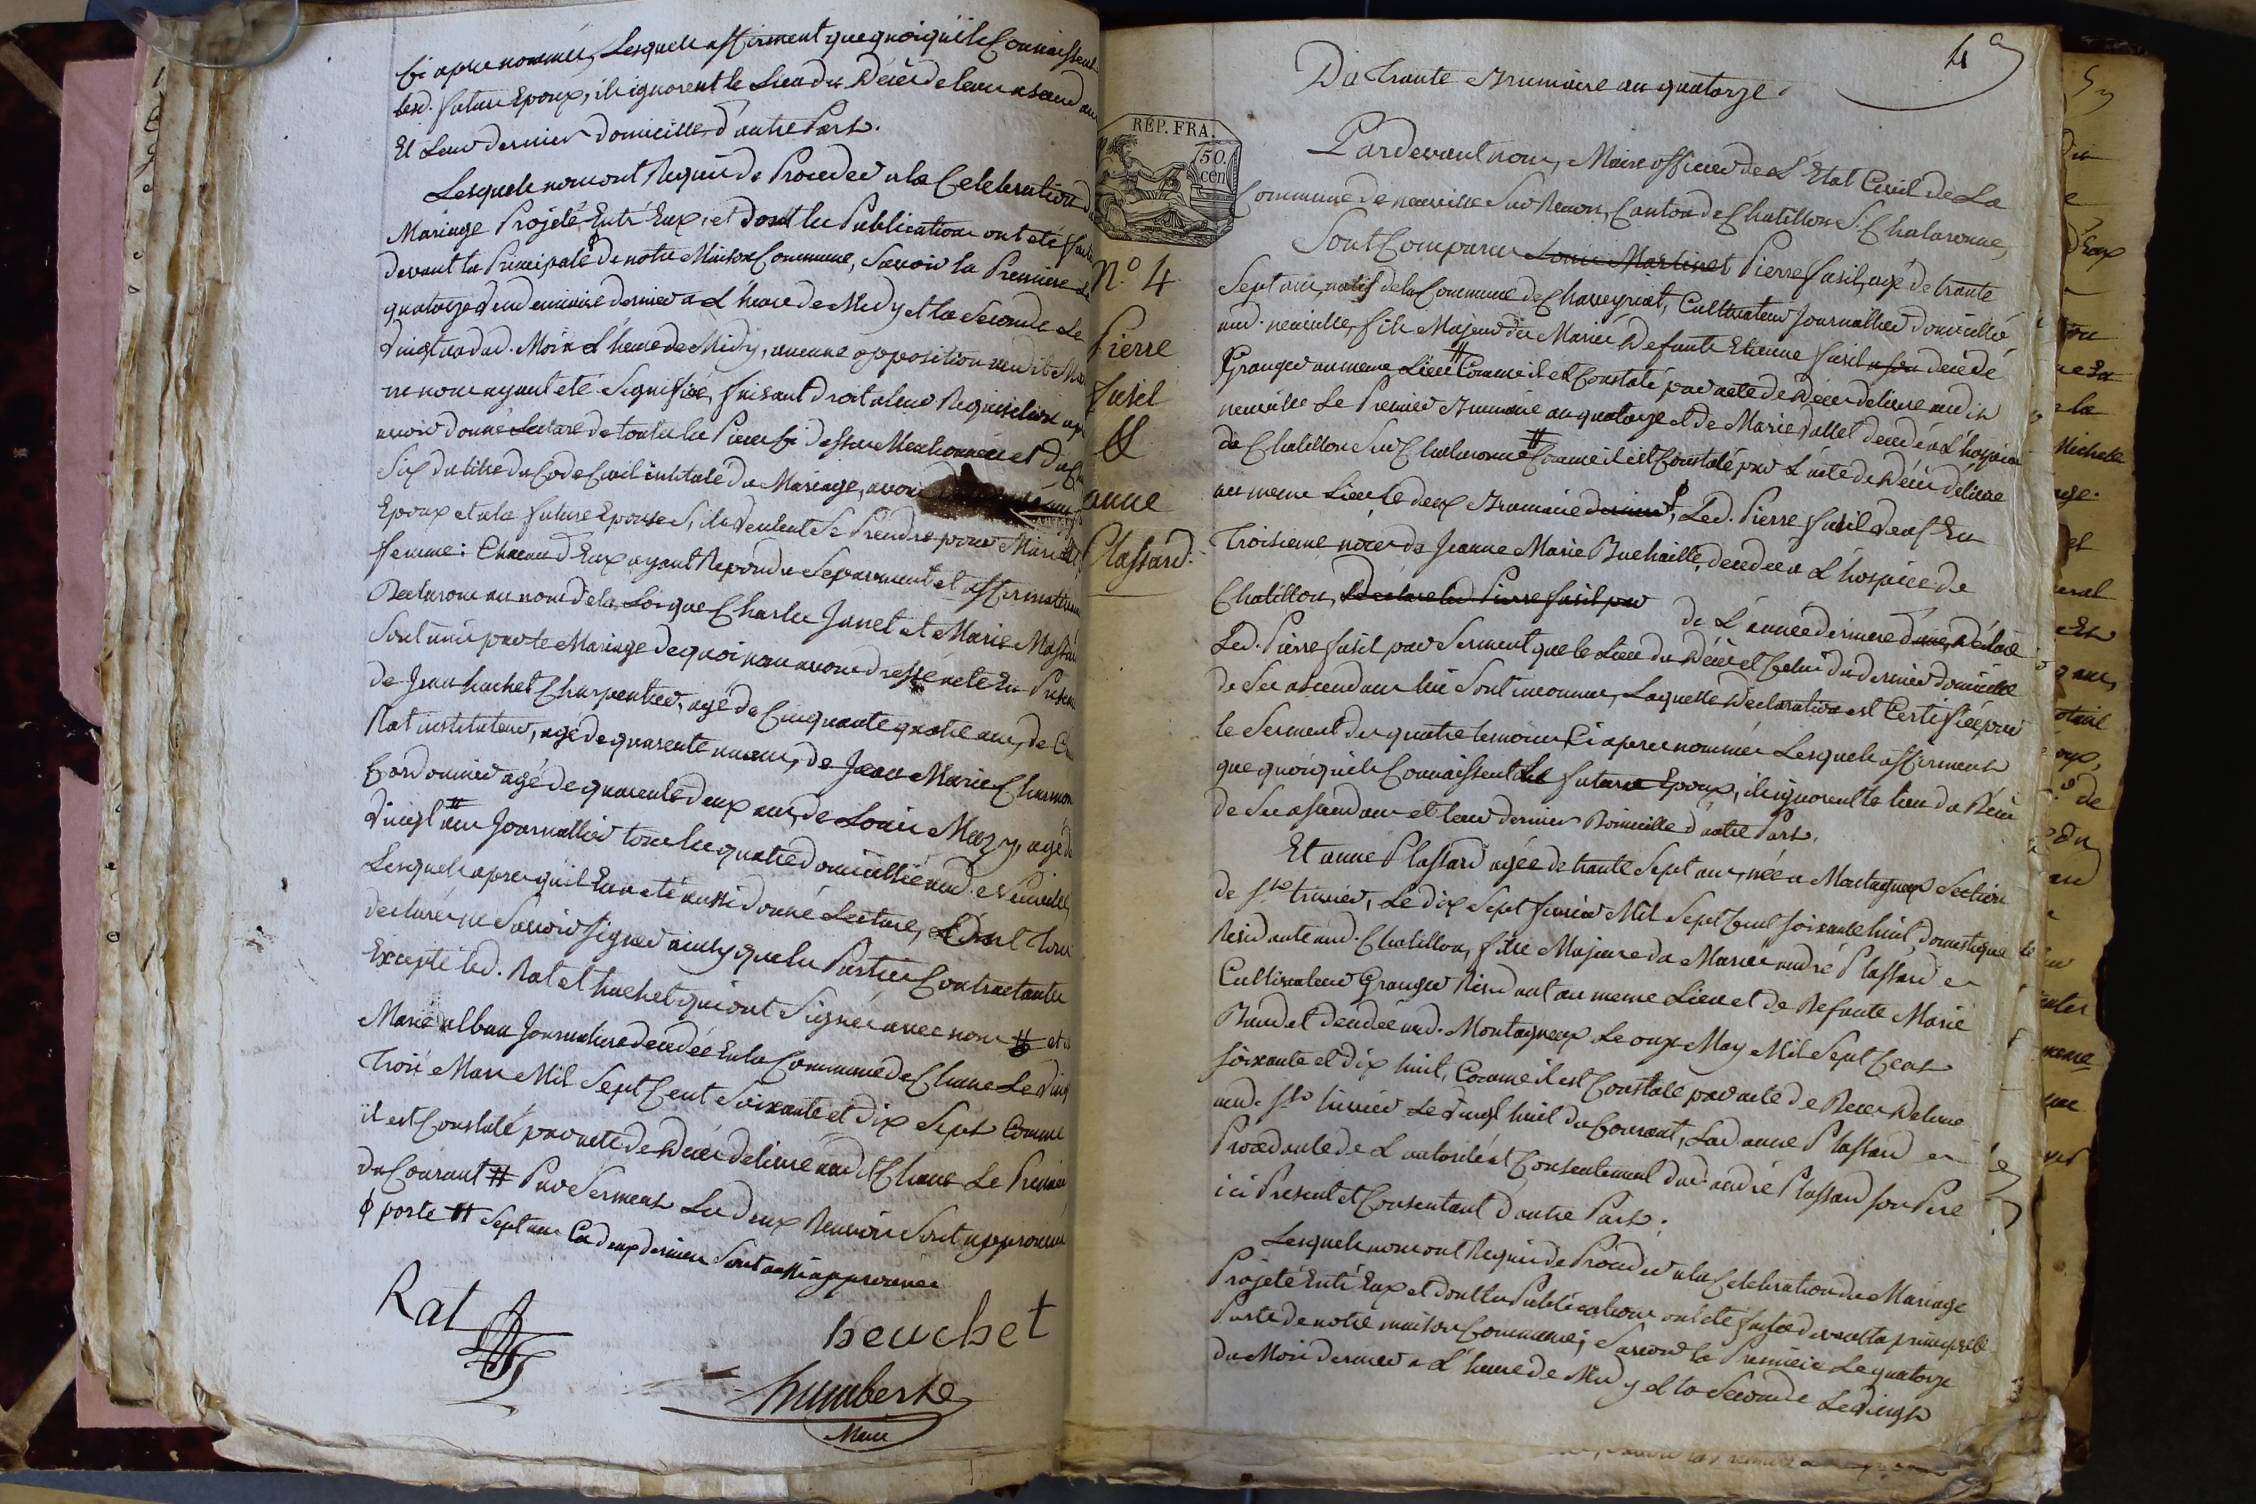 Ci apres nommés, Lesquels affirment que quoiqu'ils Connaissent
led. futur Epoux, ils ignorent le Lieu du Décès de leurs ascendans
Et Leur dernier domicille d'autre Part.
Lesquels nous ont Requis de Proceder a la Celebration du
Mariage Projeté Entr'Eux, et dont les Publications ont été faites
devant la Principale ϕ de notre Maison Commune, Savoir la Premiere Le
quatorze Vendemiaire dernier a L'heure de Midy et la Seconde Le
Vingt un dud. Mois a L'heure de Midy, aucune opposition aud. Mariage
ne nous ayant été Signifiée, faisant droit a leur Requisition apres
avoir donné Lecture de toutes les Pieces Ci dessus Mentionnées et du Chap.
Six du titre du Code Civil intitulé du Mariage, avons
Epoux et a la future Epouse S'ils veulent Se Prendre pour Mari et
femme: Chacun d'Eux ayant Repondu Separement et affirmativement
Declarons au nom de la Loi que Charles Janet et Marie
Sont unis par le Mariage de quoi nous avons dressé acte En Presence
de Jean huchet Charpentier, agé de Cinquante quatre ans, de
Rat instituteur, agé de quarente un ans, de Jean Marie
Cordonnier agé de quarente deux ans, de Louis Mazy, agé de
Vingt # ans Journallier tous les quatre domicilliés aud. Neuville,
Lesquels apres qu'il En a été aussi donné Lecture, ont Tous
declaré ne Savoir Signer ainsy que les Parties Contractantes
Excepté led. Rat et huchet qui ont Signés avec nous # et de
Marie alban Journaliere decedée En la Commune de Chane Le Vingt
Trois Mars Mil Sept Cent Soixante et dix Sept Comme
il est Constaté par acte de Décès delivré aud. Chane Le Premier
du Courant # Par Serment Les deux Renvois Sont approuvés
ϕ porte # Sept ans Ces deux derniers Sont aussi approuvés
Rat
heuchet
humbert
Maire
4
Du Trante Brumaire an quatorze.
RÉP. FRA.
50.
cen
Pardevant nous, Maire officier de L'Etat Civil de La
Commune de neuville Sur Renon, Canton de Chatillon S. Chalaronne,
Sont Comparus Louis Martinet Pierre fusil, agé de trante
N.º 4
Sept ans, natif de la Commune de Chaveyriat, Cultivateur Journallier domicillié
aud. neuville, fils Majeur des Mariés Defunts Etienne fusil decedé
Pierre
Granger au meme Lieu # Comme il est Constaté par acte de Décès delivré aud.
fusil
neuville Le Premier Brumaire an quatorze et de Marie Vallet decedée a L'hospice
&
de Chatillon Sur Chalaronne # Comme il est Constaté par L'acte de Décès délivré
anne
au meme Lieu le deux Brumaire dernier ϕ, Led. Pierre fusil Veuf En
Plassard.
Troisieme noces de Jeanne Marie Buchaille, decedée a L'hospice de
Chatillon, Declare led Pierre fusil par de L'année derniere Déclare
Led. Pierre fusil par Serment que le Lieu du Décès et Celui du dernier domicille
de Ses ascendans lui Sont inconnus, Laquelle Declaration est Certifiée par
le Serment des quatre temoins Ci apres nommés Lesquels affirment
que quoiqu'ils Connaissent Le futur Epoux, ils ignorent le lieu du Décès
de Ses assendans et leur dernier Domicille d'autre Part.
Et anne Plassard agée de trante Sept ans, née a Montagneux Section
de St. trivier, Le dix Sept Mil Sept Cent Soixante huit, domestique
Residante aud. Chatillon, fille Majeure de Mariés andré Plassard
Cultivateur Granger Residant au meme Lieu et de Defunte Marie
Baudet decedée aud. Montagneux Le onze May Mil Sept Cent
Soixante et dix huit, Comme il est Constaté par acte de Décès Delivré
aud. St. trivier Le Vingt huit du Courant, Lad. anne Plassard
Procedante de L'autorité et Consentement dud. andré Plassard Son Pere
ici Present et Consentant d'autre Part.
Lesquels nous ont Requis de Proceder a la Celebration du Mariage
Projeté Entr'Eux et dont les Publications ont été faites devant la principalle
Porte de notre maison Commune; Savoir la Premiere Le quatorze
du Mois dernier a L'heure de Midy et la Seconde Le Vingt